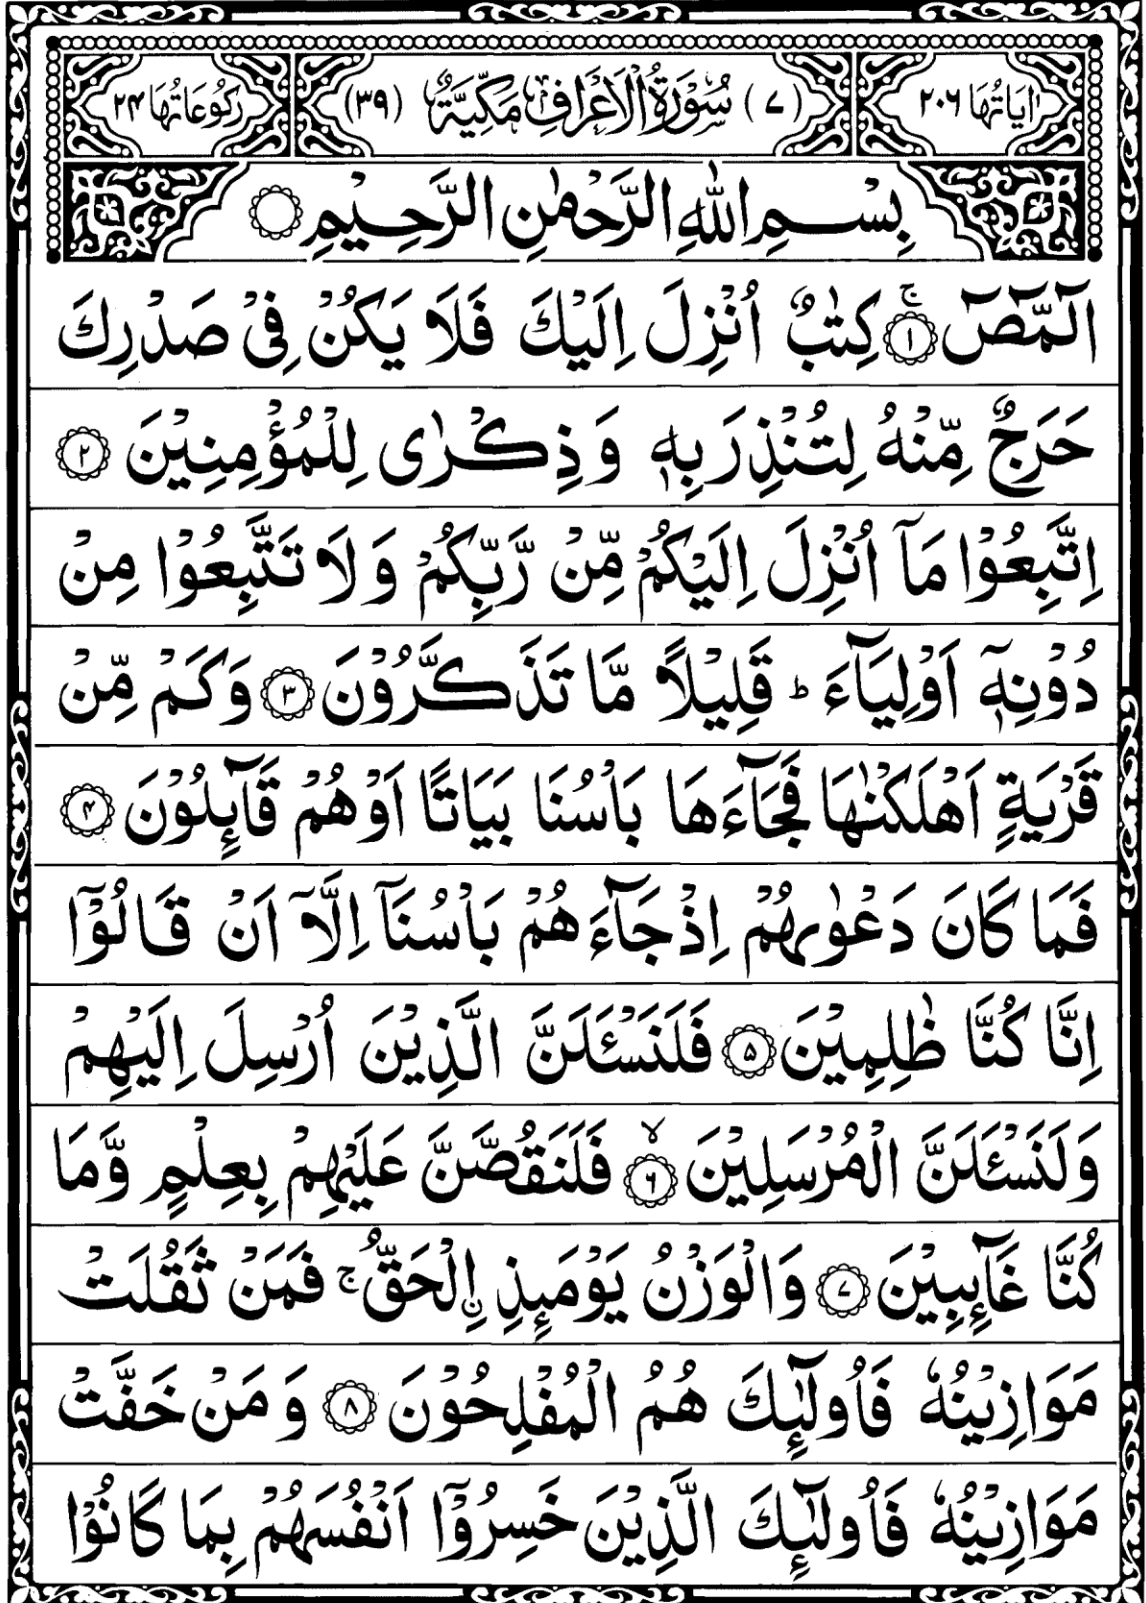 اٰيَاتُهَا ٢٠٦ (٧) سُوْرَةُ الْاَعْرَافِ مَكِّيَّةٌ (٣٩) رُكُوْعَاتُهَا ٢٤
بِسْمِ اللّٰهِ الرَّحْمٰنِ الرَّحِيْمِ
الٓمّٓصٓ ۚ‏﴿١﴾ كِتٰبٌ اُنْزِلَ اِلَيْكَ فَلَا يَكُنْ فِىْ صَدْرِكَ
حَرَجٌ مِّنْهُ لِتُنْذِرَ بِهٖ وَذِكْرٰى لِلْمُؤْمِنِيْنَ ﴿٢﴾
اِتَّبِعُوْا مَاۤ اُنْزِلَ اِلَيْكُمْ مِّنْ رَّبِّكُمْ وَلَا تَتَّبِعُوْا مِنْ
دُوْنِهٖۤ اَوْلِيَآءَ ؕ قَلِيْلًا مَّا تَذَكَّرُوْنَ ﴿٣﴾ وَكَمْ مِّنْ
قَرْيَةٍ اَهْلَكْنٰهَا فَجَآءَهَا بَاْسُنَا بَيَاتًا اَوْهُمْ قَآئِلُوْنَ ﴿۴﴾
فَمَا كَانَ دَعْوٰىهُمْ اِذْ جَآءَهُمْ بَاْسُنَاۤ اِلَّاۤ اَنْ قَالُوْۤا
اِنَّا كُنَّا ظٰلِمِيْنَ ﴿۵﴾ فَلَنَسْئَلَنَّ الَّذِيْنَ اُرْسِلَ اِلَيْهِمْ
وَلَنَسْئَلَنَّ الْمُرْسَلِيْنَ ۙ﴿۶﴾ فَلَنَقُصَّنَّ عَلَيْهِمْ بِعِلْمٍ وَّمَا
كُنَّا غَآئِبِيْنَ ﴿٧﴾ وَالْوَزْنُ يَوْمَئِذِ ۨالْحَقُّ ۚ فَمَنْ ثَقُلَتْ
مَوَازِيْنُهٗ فَاُولٰٓئِكَ هُمُ الْمُفْلِحُوْنَ ﴿٨﴾ وَمَنْ خَفَّتْ
مَوَازِيْنُهٗ فَاُولٰٓئِكَ الَّذِيْنَ خَسِرُوْۤا اَنْفُسَهُمْ بِمَا كَانُوْا